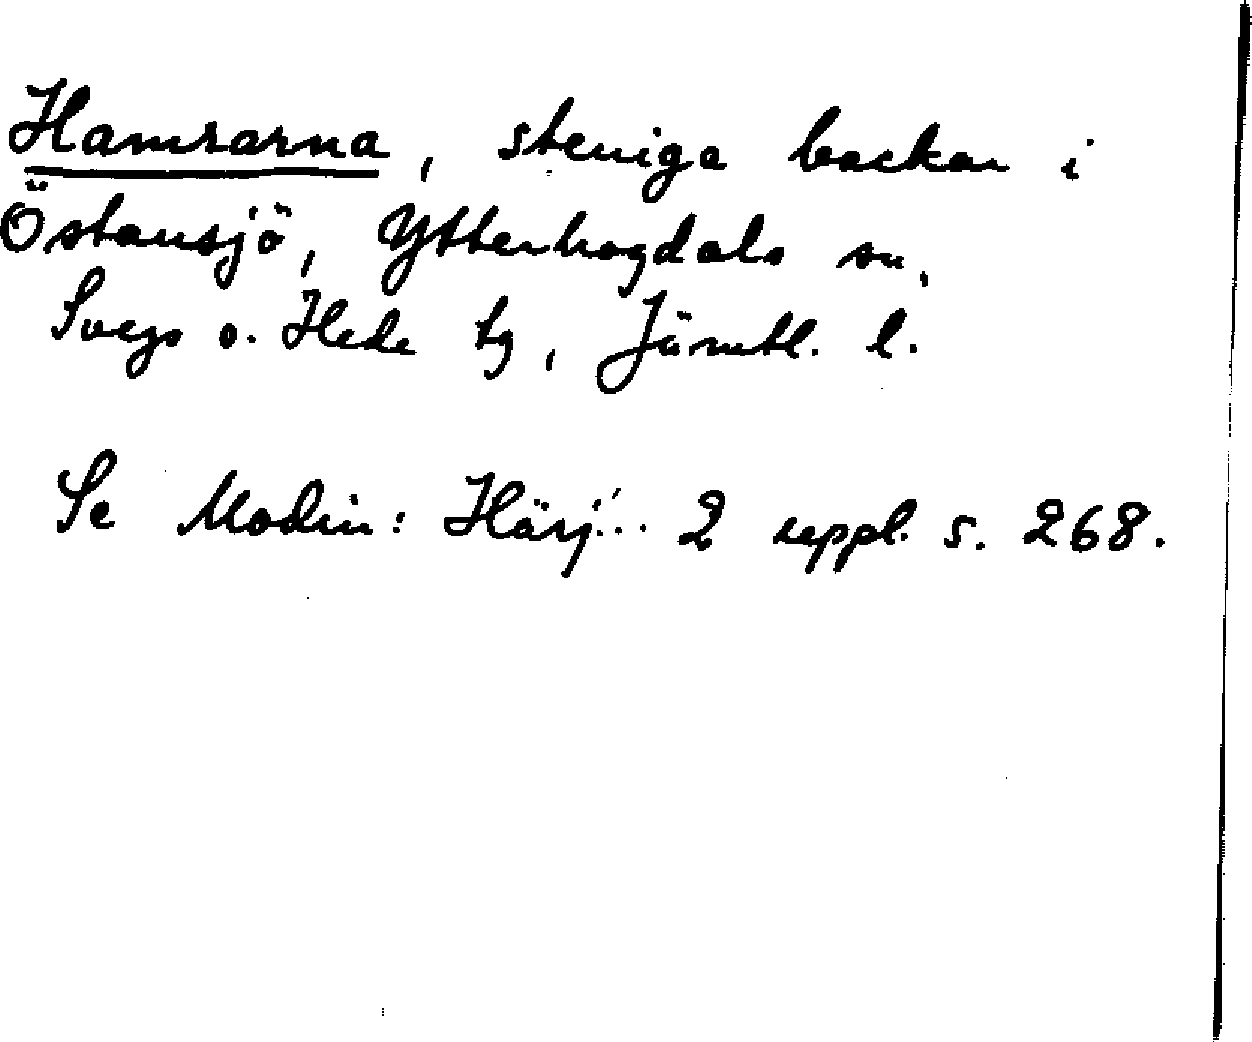 Hamrarna, steniga backar i
Östansjö, Ytterhogdals sn,
Svegs o. Hede tg, Jämtl. l.
Se Modin: Härj... 2 uppl. s. 268.